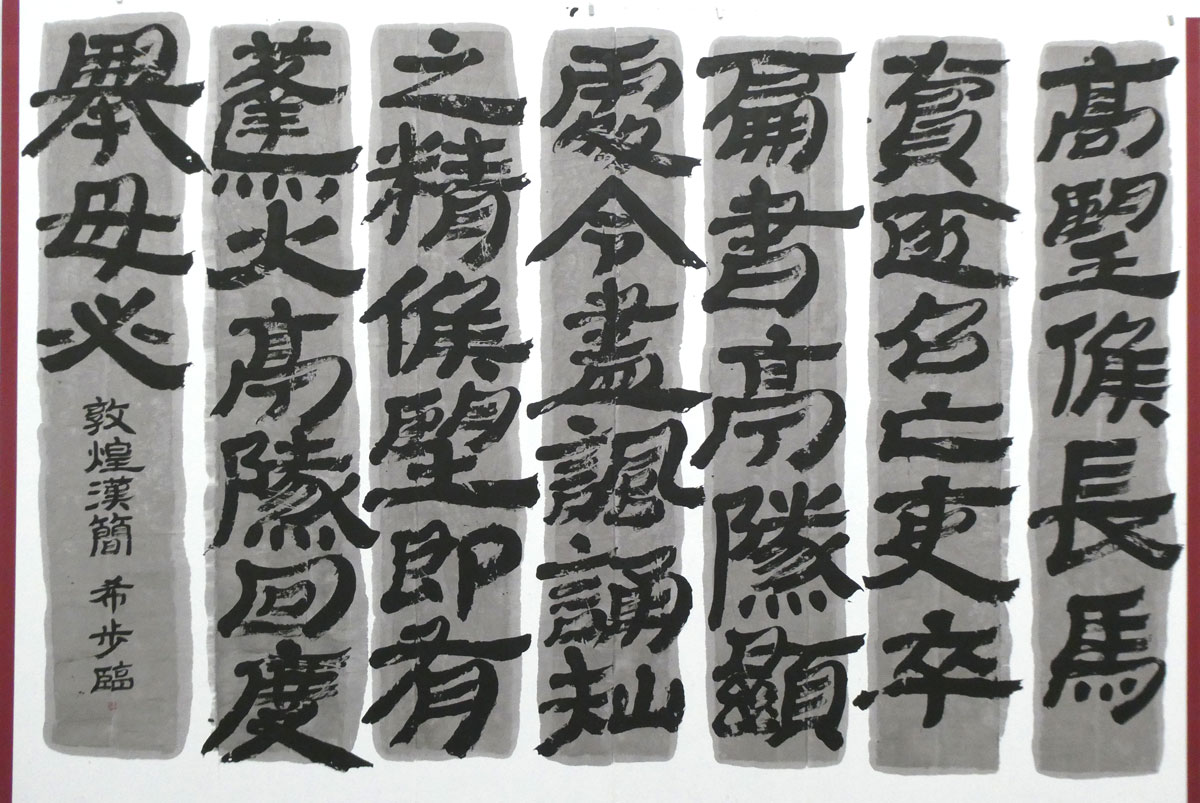 高望候長馬
亡吏卒
扁書亭隧顯
處令盡諷誦知
之精候望即有
蓬火亭隧回度
舉毋必
敦煌漢簡 希步臨